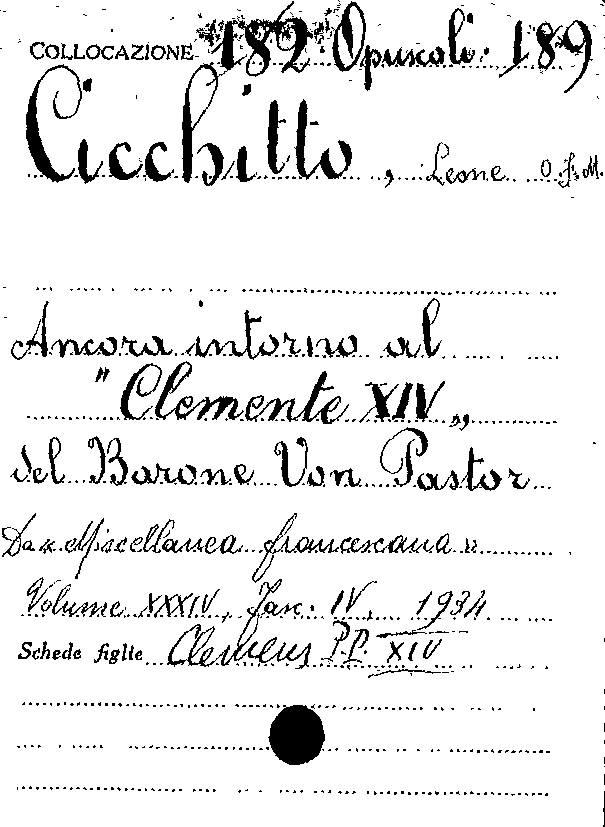 COLLOCAZIONE 182 Opuscoli: 189
Cicchitto, Leone O.F.M.
Ancora intorno al
"Clemente XIV„
del Barone Von Pastor
Da «Miscellanea francescana»
Volume XXXIV, Fasc. IV, 1934
Schede figlie Clemens P.P. XIV